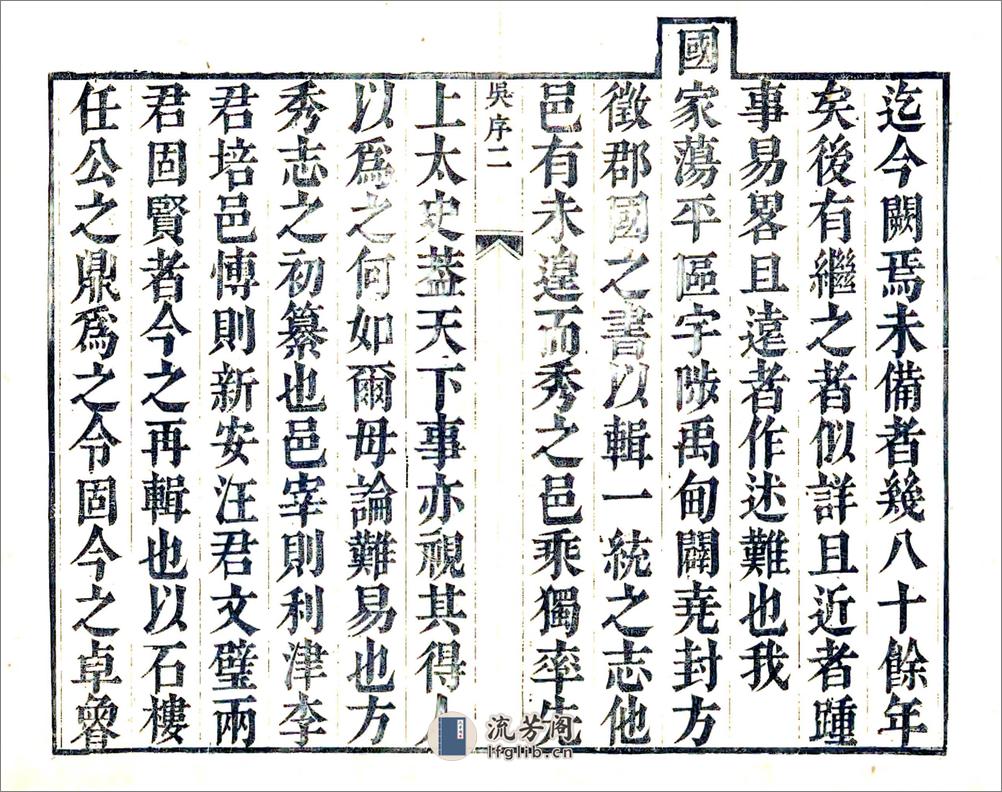 迄今闕焉未備者幾八十餘年
矣後有繼之者似詳且近者踵
事易畧且遠者作述難也我
國家蕩平區宇陟禹甸闢堯封方
徵郡國之書以輯一統之志他
邑有未遑而秀之邑乘獨率先
吳序二
上太史葢天下事亦視其得人
以爲之何如爾毋論難易也方
秀志之初纂也邑宰則利津李
君培邑愽則新安汪君文璧兩
君固賢者今之再輯也以石樓
任公之鼎爲之令固今之卓魯
流芳阁
lfglib.cn